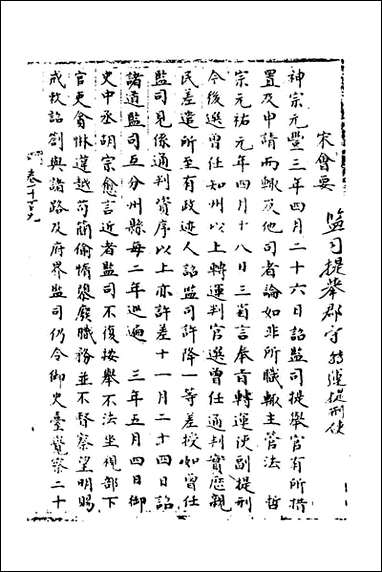 宋會要
監司提舉郡守轉運提刑使
神宗元豐三年四月二十六日詔監司提舉官有所措
置及申請而輒及他司者論如非所職輒主管法 哲
宗元祐元年四月十八日三省言奉旨轉運使副提刑
今後選曾任知州以上轉運判官選曾任通判實歷親
民差遣所至有政迹人詔監司許降一等差授如曾任
監司見係通判資序以上亦許差十一月二十四日詔
諸道監司互分州縣每二年巡遍 三年五月四日御
史中丞胡宗愈言近者監司不復按舉不法坐視部下
官吏貪惏違越苟簡偷惰隳廢職務並不督察望明賜
戒敕詔劄與諸路及府界監司仍令御史臺覺察二十
卷一千百九